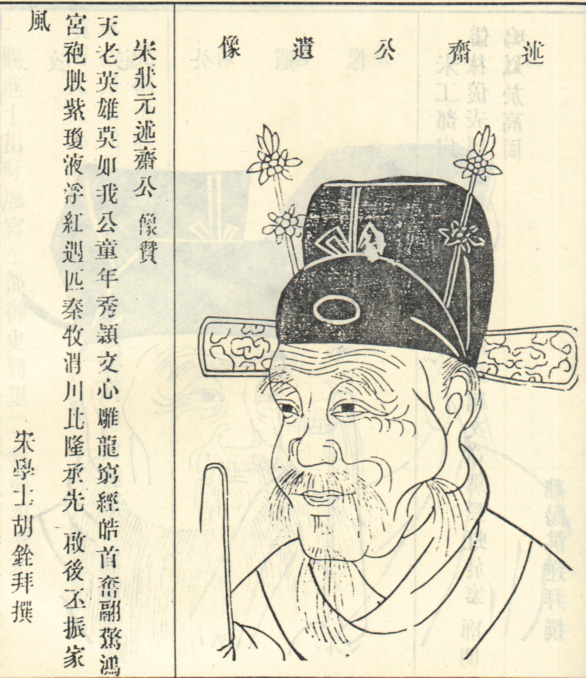 述齋公遺像
宋狀元述齋公 像贊
天老英雄莫如我公童年秀穎文心雕龍窮經皓首奮翮驚鴻
宮袍映紫瓊液浮紅遇匹秦牧渭川比隆承先 啟後丕振家
風
宋學士胡銓拜撰